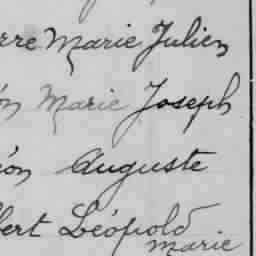 erre Marie Julien
ón Marie Joseph
ión Auguste
bert Léópold
Marie